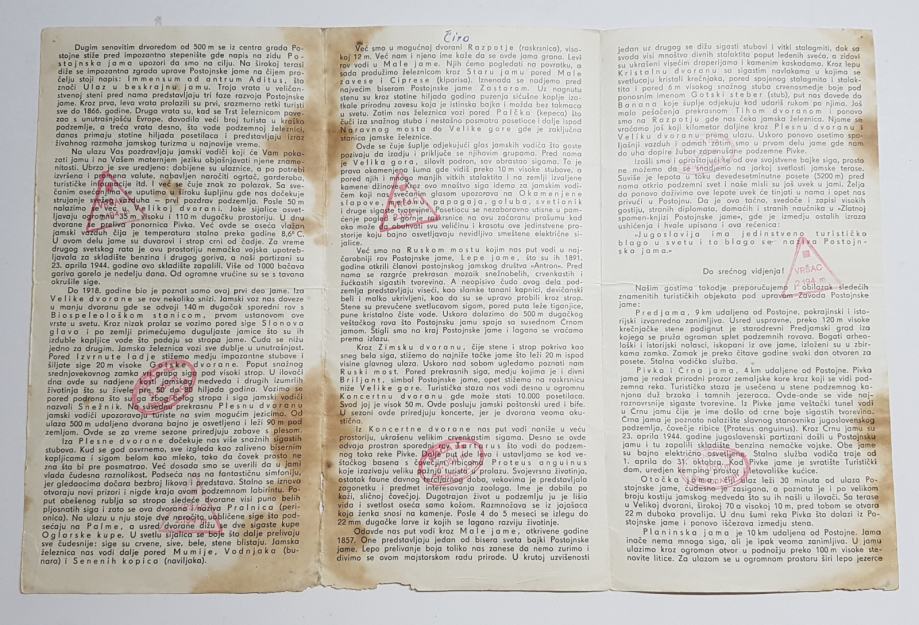 Čiro
Dugim senovitim drvoredom od 500 m se iz centra grada Po-
stojne stiže pred impozantno stepenište gde napis na zidu Po-
stojnska jama upozori da smo na cilju. Na širokoj terasi
diže se impozantna zgrada uprave Postojnske jame na čijem pro-
čelju stoji napis: Immensum ad antrum Aditus, što
znači Ulaz u beskrajnu jamu. Troja vrata u veličan-
stvenoj steni pred nama predstavljaju tri faze razvoja Postojnske
jame. Kroz prva, leva vrata prolazili su prvi, srazmerno retki turisti
sve do 1866. godine. Druga vrata su, kad se Trst železnicom pove-
zao s unutrašnjošću Evrope, dovodila veći broj turista u kraško
podzemlje, a treća vrata desno, što vode podzemnoj železnici,
danas primaju stotine hiljada posetilaca i predstavljaju izraz
živahnog razmaha jamskog turizma u najnovije vreme.
Na ulazu Vas pozdravljaju jamski vodiči koji će Vam poka-
zati jamu i na Vašem maternjem jeziku objašnjavati njene zname-
nitosti. Ubrzo je sve uređeno: dobijene su ulaznice, a po potrebi
izvršene valute, nabavljen naročiti ogrtač, garderoba,
turističke itd. I već se čuje znak za polazak. Sa sve-
čanim uputimo u široku šupljinu gde nas dočekuje
strujanje vazduha – prvi pozdrav podzemlja. Posle 50 m
nalazimo se u Velikoj dvorani. Jake sijalice osvet-
ljavaju ogromnu 35 m visoku i 110 m dugačku prostoriju. U dnu
dvorane ponornica Pivka. Već ovde se oseća vlažan
jamski vazduh čija je temperatura stalno preko cele godine 8,6° C.
U ovom delu jame su dvorani i strop crni od čađe. Za vreme
drugog svetskog rata je ovu prostoriju nemačka vojska upotreb-
ljavala za skladište benzina i drugog goriva, a naši partizani su
23. aprila 1944. godine ovo skladište zapalili. Više od 1000 bačava
goriva gorelo je nedelju dana. Od ogromne vrućine su se s tavana
okrušile sige.
Do 1918. godine bio je poznat samo ovaj prvi deo jame. Iza
Velike dvorane se rov nekoliko snizi. Jamski voz nas doveze
u manju dvoranu gde se odvoji 140 m dugačak sporedni rov s
Biospeleološkom stanicom, prvom ustanovom ove
vrste u svetu. Kroz nizak prolaz se vozimo pred sige Slonova
glava i po zemlji primećujemo duguljaste jamice što su ih
izdubile kapljice vode što padaju sa stropa jame. Čuda se nižu
jedno za drugim. Jamska železnica vozi sve dublje u unutrašnjost.
Pored Izvrnute lađe stižemo među impozantne stubove i
šiljate sige 20 m visoke dvorane. Poput snažnog
srednjovekovnog zamka stropa sig pod visoki strop. U ilovači
dna ovde su nađene kosti jamskog medveda i drugih izumrlih
životinja što su živele pre 50 do hiljada godina. Vozimo se
pored ponora što su stropa i siga jamski vodiči
nazvali Snežnik. U prekrasnu Plesnu dvoranu
jamski vodiči upozoravaju turiste na svim mogućim jezicima. Od
ulaza 500 m udaljena dvorana bajno je osvetljena i leži 90 m pod
zemljom. Ovde se za vreme sezone priređuju zabave s plesom.
Iza Plesne dvorane dočekuje nas više snažnih sigastih
stubova. Kud se god osvrnemo, sve izgleda kao zaliveno biserom
kapljicama i sigom belom kao mleko, tako da čovek prosto ne
zna šta bi pre posmatrao. Već dosada smo se uverili da u jami
vlada čudesna raznolikost. Podseća nas na fantastičnu simfoniju
jer gledaocima dočara bezbroj likova i predstava. Stalno nam se
otvaraju novi prizori i nigde kraja ovom podzemnom labirintu. Po-
put obešenog rublja sa stropa sledeće dvorane visi puno belih
pljosnatih siga i zato se ova dvorana zove Pralnica (peri-
onica). Na ulazu u nju stoje dve naročito uobličene sige što pod-
sećaju na Palme, a usred dvorane dižu se sigaste kupe
Oglarske kupe. U svetlu sijalica se boje što dalje prelivaju
sve čudesnije: sige su crvene, sive, bele, stene blistaju. Jamska
železnica nas vodi dalje pored Mumije, Vodnjaka (bu-
nara) i Senenih kopica (naviljaka).
Već smo u mogućnoj dvorani Razpotje (raskrsnica), viso-
koj 12 m. Već nam i njeno ime kaže da se ovde jama grana. Levi
rov vodi u Male jame. Njih ćemo pogledati na povratku, a
sada produžimo železnicom kroz Staru jamu pored Male
zavese i Ciprese (kiparisa). Iznenada se nađemo pred
najvećim biserom Postojnske jame Zastorom. Uz nagnutu
stenu su kroz stotine hiljada godina puzenja sićušne kaplje iza-
tkale prirodnu zavesu koja je istinska bajka i možda bez takmaca
u svetu. Zatim nas železnica vozi pored Palčka (kepeca) što
čuči iza snažnog stuba i nestašno posmatra posetioce i dalje ispod
Naravnog mosta do Velike gore gde je zaključna
stanica jamske železnice.
Ovde se čuje šuplje odjekujući glas jamskih vodiča što goste
pozivaju da izađu i priključe se njihovim grupama. Pred nama
je Velika gora, silovit podor, sav obrastao sigama. To je
prava okamenjena šuma gde vidiš preko 10 m visoke stubove, a
pored njih i mnogo manjih vitkih stalaktita i na zemlji izvaljene
kamene džinove. Kroz ovo mnoštvo siga idemo za jamskim vodi-
čem koji nas svečanim glasom upozorava na Okamenjene
slapove, papagaja, goluba, svetionik
i druge sigaste posetiocu se nezaboravno utisne u pam-
ćenje pogled na ovu začaranu prašumu kad
može obuhvati svu veličinu i krasotu ove jedinstvene pro-
storije koju bajno osvetljavaju nevidljivo smeštene električne si-
jalice.
Već smo na Ruskom mostu kojim nas put vodi u naj-
čarobniji rov Postojnske jame, Lepe jame, što su ih 1891.
godine otkrili članovi postojnskog jamskog društva »Antron«. Pred
nama se razgrće prekrasan mozaik mlečnobelih, crvenkastih i
žućkastih sigastih tvorevina. A neopisivo čudo ovog dela pod-
zemlja predstavljaju viseći, kao slamke tanani kapnici, devičanski
beli i malko uvijeni, kao da su se upravo probili kroz strop.
Stene su prevučene svetlucavom sigom, pored puta leže figanjice,
pune kristalno čiste vode. Uskoro dolazimo do 500 m dugačkog
veštačkog rova što Postojnsku jamu spaja sa susednom Crnom
jamom. Stigli smo na kraj Postojnske jame i lagano se vraćamo
prema izlazu.
Kroz Zimsku dvoranu, čije stene i strop pokriva kao
sneg bela siga, stižemo do najniže tačke jame što leži 20 m ispod
visine glavnog ulaza. Uskoro nad sobom ugledamo poznati nam
Ruski most. Pored prekrasnih siga, među kojima je i divni
Briljant, simbol Postojnske jame, opet stižemo na raskrsnicu
niže Velike gore. Turistička staza nas vodi desno u ogromnu
Koncertnu dvoranu gde može stati 10.000 posetilaca.
Svod joj je visok 50 m. Ovde posluju jamski poštanski ured i bife.
U sezoni ovde priređuju koncerte, jer je dvorana veoma aku-
stična.
Iz Koncertne dvorane nas put vodi naniže u veću
prostoriju, ukrašenu velikim sigama. Desno se ovde
odvoji prostran sporedni Tartarus što vodi do podzem-
nog toka reke Pivke. i ustavljamo se kod ve-
štačkog basena Proteus anguinus
koje izazivaju veliku pažnju turista. Svojevrsna životinja,
ostatak faune davnog doba, vekovima je predstavljala
zagonetku i predmet istraživanja zoologa. Ime je dobila po
koži, sličnoj čovečjoj. Dugotrajan život u podzemlju ju je lišio
vida i svetlost oseća samo kožom. Razmnožava se iz jajašaca
koja ženka snosi na kamenje. Posle 4 do 5 meseci se izlegu do
22 mm dugačke larve iz kojih se lagano razvija životinja.
Odavde nas put vozi kroz Male jame, otkrivene godine
1857. One predstavljaju jedan od bisera sveta bajki Postojnske
jame. Lepo prelivanje boja toliko nas zanese da nemo zurimo i
divimo se ovom majstorskom radu prirode. U krutoj uzvišenosti
jedan uz drugog se dižu sigasti stubovi i vitki stalagmiti, dok sa
svoda visi mnoštvo divnih stalaktita poput ledenih sveća, a zidovi
su ukrašeni visećim draperijama i kamenim kaskadama. Kroz lepu
Kristalnu dvoranu sa sigastim navlakama u kojima se
svetlucaju kristali krečnjaka, pored spojenog stalagmita i stalak-
tita i pored 6 m visokog snažnog stuba crvenosmeđe boje pod
ponosnim imenom Gotski steber (stub), put nas dovede do
Banana koje šuplje odjekuju kad udariš rukom po njima. Još
mala pešačenja prekrasnom Tihom dvoranom i ponovo
smo na Razpotju gde nas čeka jamska železnica. Njome se
vraćamo još koji kilometar daljine kroz Plesnu dvoranu i
Veliku dvoranu prema ulazu. Uskoro ponovo osetimo spo-
ljašnji vazduh i odmah zatim smo u prvom delu jame gde nam
do uha dopire žubor zapenušane podzemne Pivke.
Izašli smo i oprostili se od ove svojstvene bajke siga, prosto
ne možemo da se snađemo na jarkoj svetlosti jamske terase.
Suviše je lepota u toku devedesetminutne posete (5200 m) pred
nama otkrio podzemni svet i naše misli su još uvek u jami. Želja
da ponovo doživimo ove lepote uvek će tinjati u nama i opet nas
privući u Postojnu. Da je ovo tačno, svedoče i zapisi visokih
gostiju, stranih diplomata, domaćih i stranih naučnika u »Zlatnoj
spomen-knjizi Postojnske jame«, gde je između ostalih izraza
ushićenja i hvale upisana i ova rečenica:
»Jugoslavija ima jedinstveno turističko
blago u svetu i to blago se naziva Postojn-
ska jama.«
Do srećnog viđenja!
Našim gostima takođe preporučujemo i obilazak sledećih
znamenitih turističkih objekata pod upravom Zavoda Postojnske
jame:
Predjama, 9 km udaljena od Postojne, pokrajinski i isto-
rijski izvanredno zanimljiva. Usred uspravne, preko 120 m visoke
krečnjačke stene podignut je starodrevni Predjamski grad iza
kojega se pruža ogroman splet podzemnih rovova. Bogati arheo-
loški i istorijski nalasci, iskopani iz ove jame, izloženi su u zbir-
kama zamka. Zamak je preko čitave godine svaki dan otvoren za
posete. Stalna vodička služba.
Pivka i Črna jama, 4 km udaljene od Postojne. Pivka
jama je redak prirodni prozor zemaljske kore kroz koji se vidi pod-
zemna reka. Turistička staza je usečena u stene podzemnog ka-
njona duž brzaka i tamnih jezeraca. Ovde-onde se vide naj-
raznovrsnije sigaste tvorevine. Iz Pivke jame veštački tunel vodi
u Črnu jamu čije je ime došlo od crne boje sigastih tvorevina.
Črna jama je poznato nalazište slavnog stanovnika jugoslovenskog
podzemlja, čovečje ribice (Proteus anguinus). Kroz Črnu jamu su
23. aprila 1944. godine jugoslavenski partizani došli u Postojnsku
jamu i tu zapalili skladište benzina nemačke vojske. Obe jame
su bajno električno osvetljene. Stalna služba vodiča traje od
1. aprila do 31. oktobra. Kod Pivke jame je svratište Turistički
dom, uređen kemping prostor i stovalilske kućice.
Otočka jama leži 30 minuta od ulaza Po-
stojnske jame, čudesno je zasigana, a poznata je i po velikom
broju kostiju jamskog medveda što su ih našli u ilovači. Sa terase
u Velikoj dvorani, širokoj 70 a visokoj 10 m, pred tobom se otvara
22 m duboka provalija. U dnu šumi reka Pivka što dolazi iz Po-
stojnske jame i ponovo iščezava između stena.
Planinska jama je 10 km udaljena od Postojne. Jama
inače nema mnogo siga, ali je ipak veoma zanimljiva. U jamu
ulazimo kroz ogroman otvor u podnožju preko 100 m visoke ste-
novite litice. Za ulazom se u ogromnom prostoru širi lepo jezerce
VRŠAC